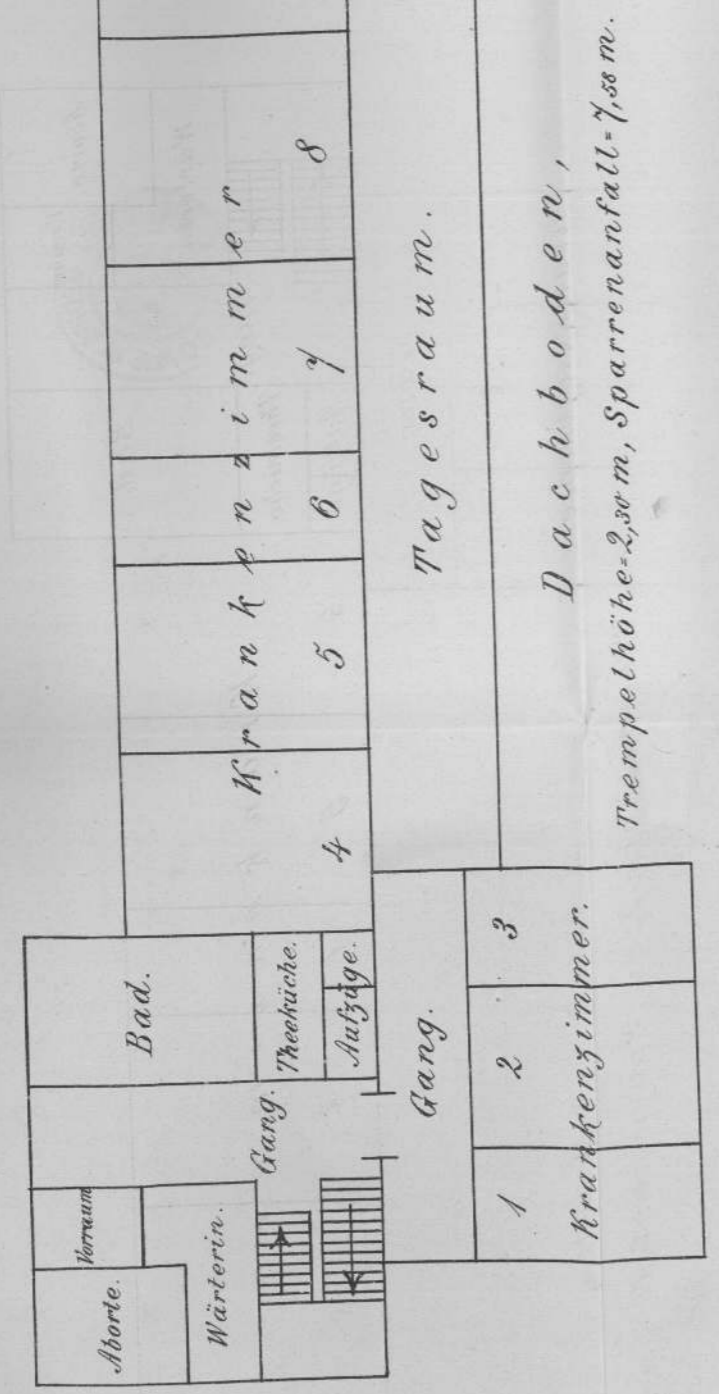 Aborte.
Vorraum
Wärterin.
Gang.
Bad.
Theeküche.
Aufzüge.
Krankenzimmer
4 5 6 7 8
Gang.
Tagesraum.
1 2 3
Krankenzimmer.
Dachboden,
Trempelhöhe=2,30 m, Sparrenanfall=7,58 m.